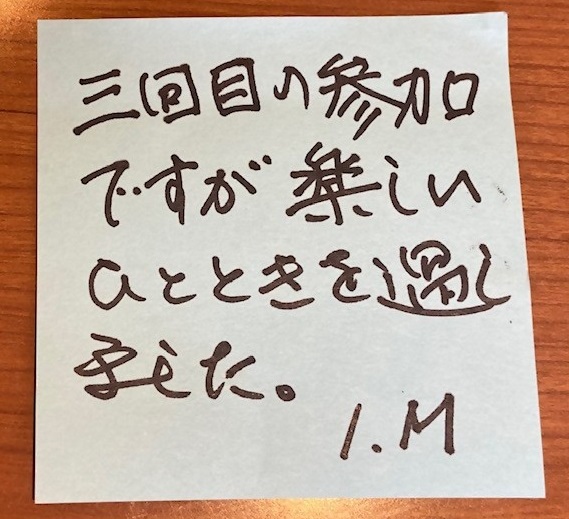 三回目の参加
ですが楽しい
ひとときを過し
ました。
I.M